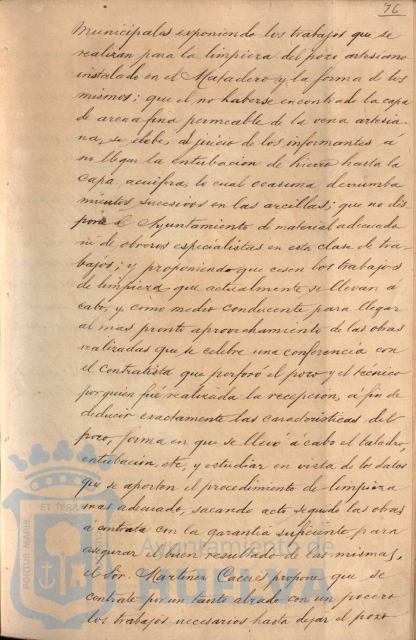 76
Municipales exponiendo los trabajos que se
realizan para la limpieza del pozo artesiano
instalado en el Matadero y la forma de los
mismos; que el no haberse encontrado la capa
de arena fina permeable de la vena artesia-
na, se debe, á juicio de los informantes á
no llegar la entubacion de hierro hasta la
capa acuifera, lo cual ocasiona derrumba
mientos sucesivos en las arcillas; que no dis
pone el Ayuntamiento de material adecuado
ni de obreros especialistas en esta clase de tra-
bajos; y proponiendo que cesen los trabajos
de limpieza que actualmente se llevan á
cabo, y como medio conducente para llegar
al mas pronto aprovechamiento de las obras
realizadas que se celebre una conferencia con
el contratista que perforó el pozo y el técnico
por quien fué realizada la recepcion, á fin de
deducir exactamente las caracteristicas del
pozo, forma en que se llevó á cabo el taladro,
entubacion, etc, y estudiar en vista de los datos
que se aporten el procedimiento de limpieza
mas adecuado, sacando acto seguido las obras
á contrata con la garantia suficiente para
asegurar el buen resultado de las mismas,
el Sor. Martinez Caceres propone que se
contrate por un tanto alzado con un pocero
los trabajos necesarios hasta dejar el pozo
PORTUS MARIS ET TERRAE CUSTODIA
Ayuntamiento de
HUELVA